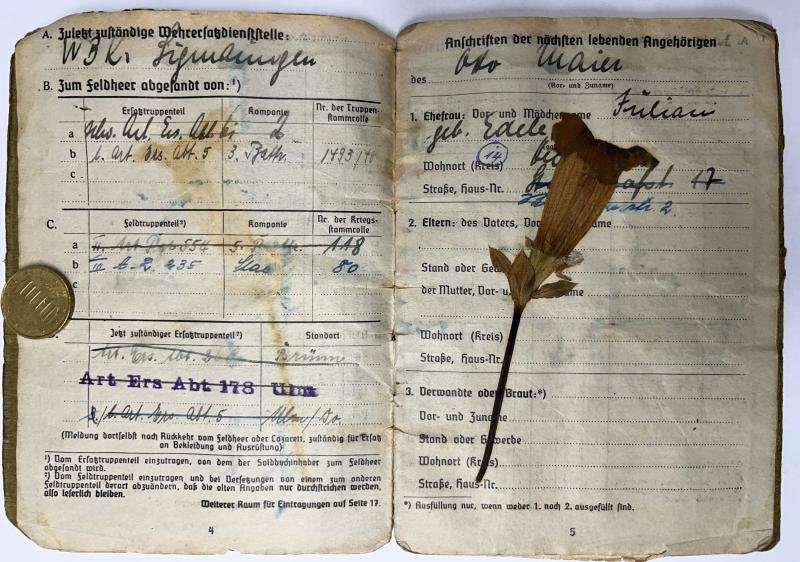 A. Zuletzt zuständige Wehrersatzdienststelle:
W.B.K. Sigmaringen
B. Zum Feldheer abgesandt von:¹)
Ersatztruppenteil Kompanie Nr. der Truppenstammrolle
a Art. Ers. Abt.
b l. Art. Ers. Abt. 5 3. Battr. 1493/40
c
C. Feldtruppenteil²) Kompanie Nr. der Kriegsstammrolle
a 118
b III A. R. 235 Stab 80
c
Jetzt zuständiger Ersatztruppenteil²) Standort
Art. Ers. Abt. Brünn
Art Ers Abt 178 Ulm
l. Art. Ers. Abt. 5 Ulm/Do.
(Meldung dortselbst nach Rückkehr vom Feldheer oder Lazarett, zuständig für Ersatz
an Bekleidung und Ausrüstung)
¹) Vom Ersatztruppenteil einzutragen, von dem der Soldbuchinhaber zum Feldheer
abgesandt wird.
²) Vom Feldtruppenteil einzutragen und bei Versetzungen von einem zum anderen
Feldtruppenteil derart abzuändern, daß die alten Angaben nur durchstrichen werden,
also leserlich bleiben.
Weiterer Raum für Eintragungen auf Seite 17.
4
Anschriften der nächsten lebenden Angehörigen
des Otto Maier
(Vor- und Zuname)
1. Ehefrau: Vor- und Mädchenname
geb. Edele
Wohnort (Kreis) 14
Straße, Haus-Nr. 17
str 2.
2. Eltern: des Vaters, Vor-
Stand oder
der Mutter, Vor- u
Wohnort (Kreis)
Straße, Haus-Nr.
3. Verwandte oder Braut:*)
Vor- und Zuname
Stand oder Gewerbe
Wohnort (Kreis)
Straße, Haus-Nr.
*) Ausfüllung nur, wenn weder 1. noch 2. ausgefüllt sind.
5